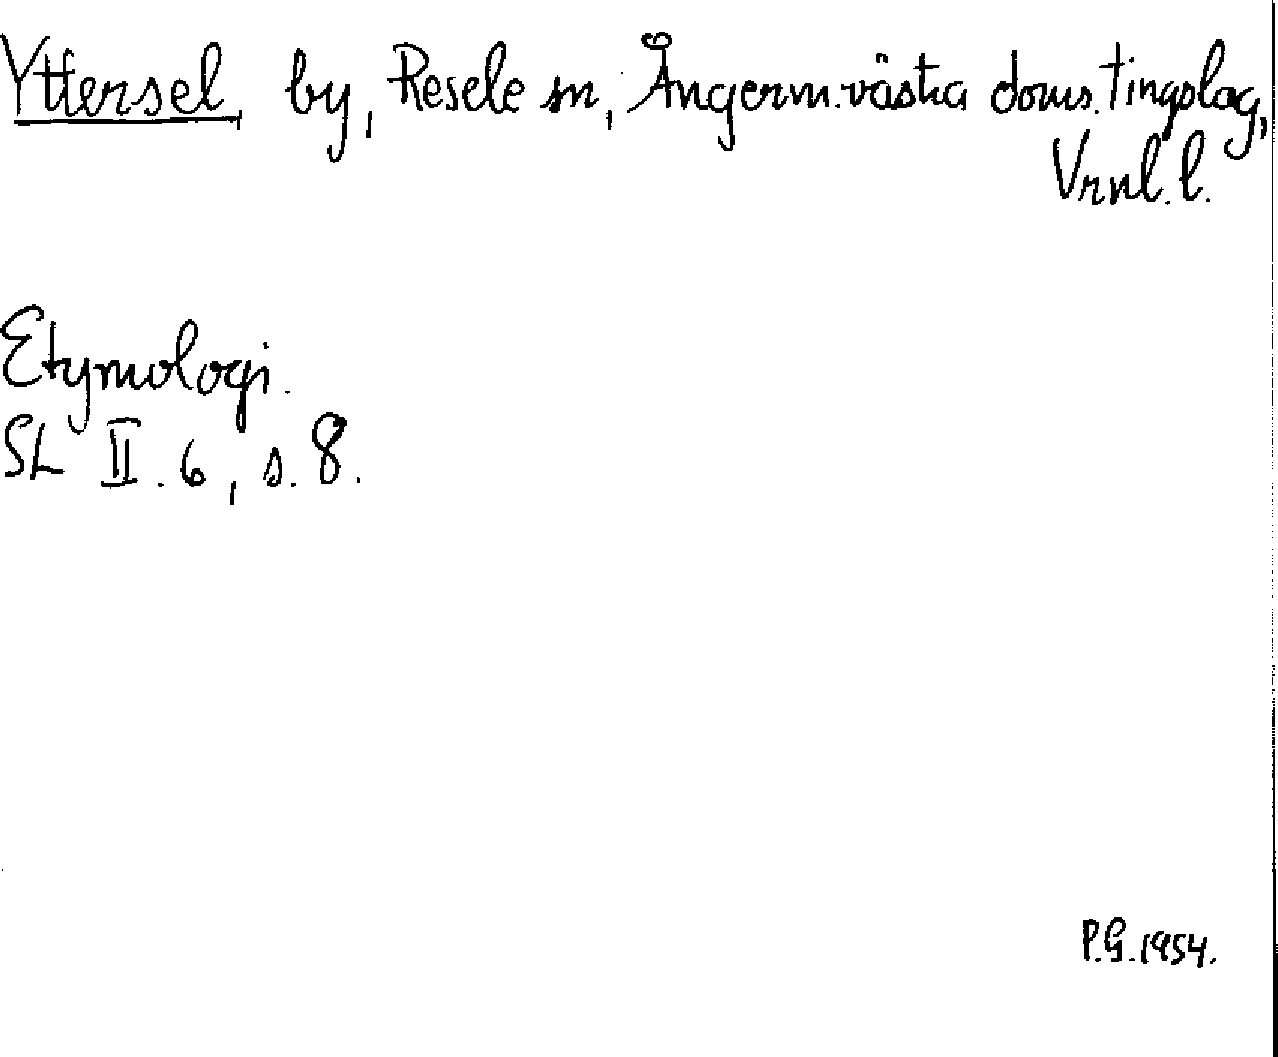 Yttersel, by, Resele sn, Ångerm. västra doms. tingslag,
Vrnl. l.
Etymologi.
SL II. 6, s. 8.
P.G. 1954.